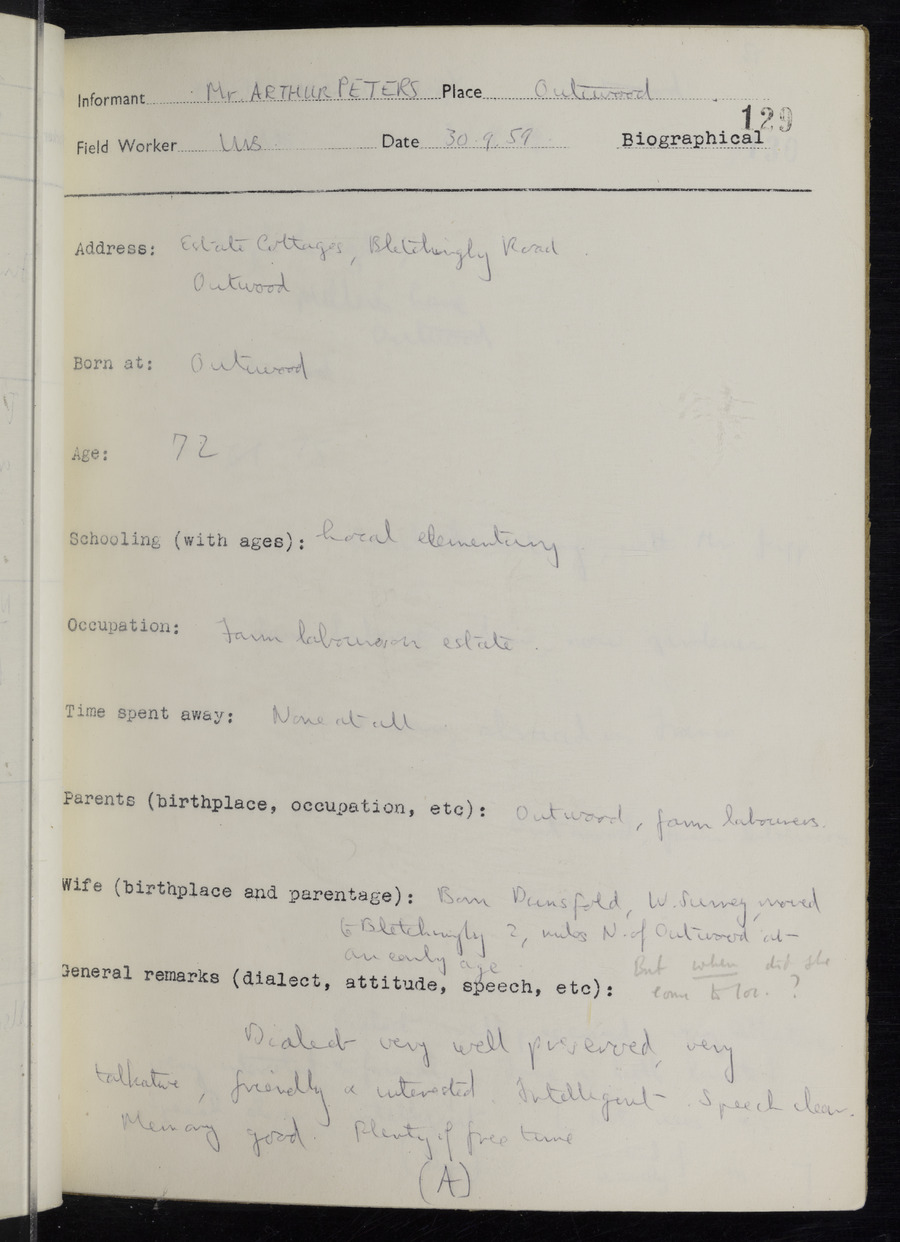 Informant Mr. ARTHUR PETERS Place Outwood
129
Field Worker Date 30.9.59 Biographical
Address: Estate Cottages, Bletchingly Road
Outwood
Born at: Outwood
Age: 72
Schooling (with ages): Local elementary
Occupation: Farm labourer on estate.
Time spent away: None at all
Parents (birthplace, occupation, etc): Outwood, farm labourers.
Wife (birthplace and parentage): Born Dunsfold, W. Surrey, moved
to Bletchingly 2½ miles N. of Outwood at
an early age
But when did she
General remarks (dialect, attitude, speech, etc):
come to loc. ?
Dialect very well preserved, very
talkative, friendly & interested. Intelligent. Speech clear.
Memory good. Plenty of free time
(A)